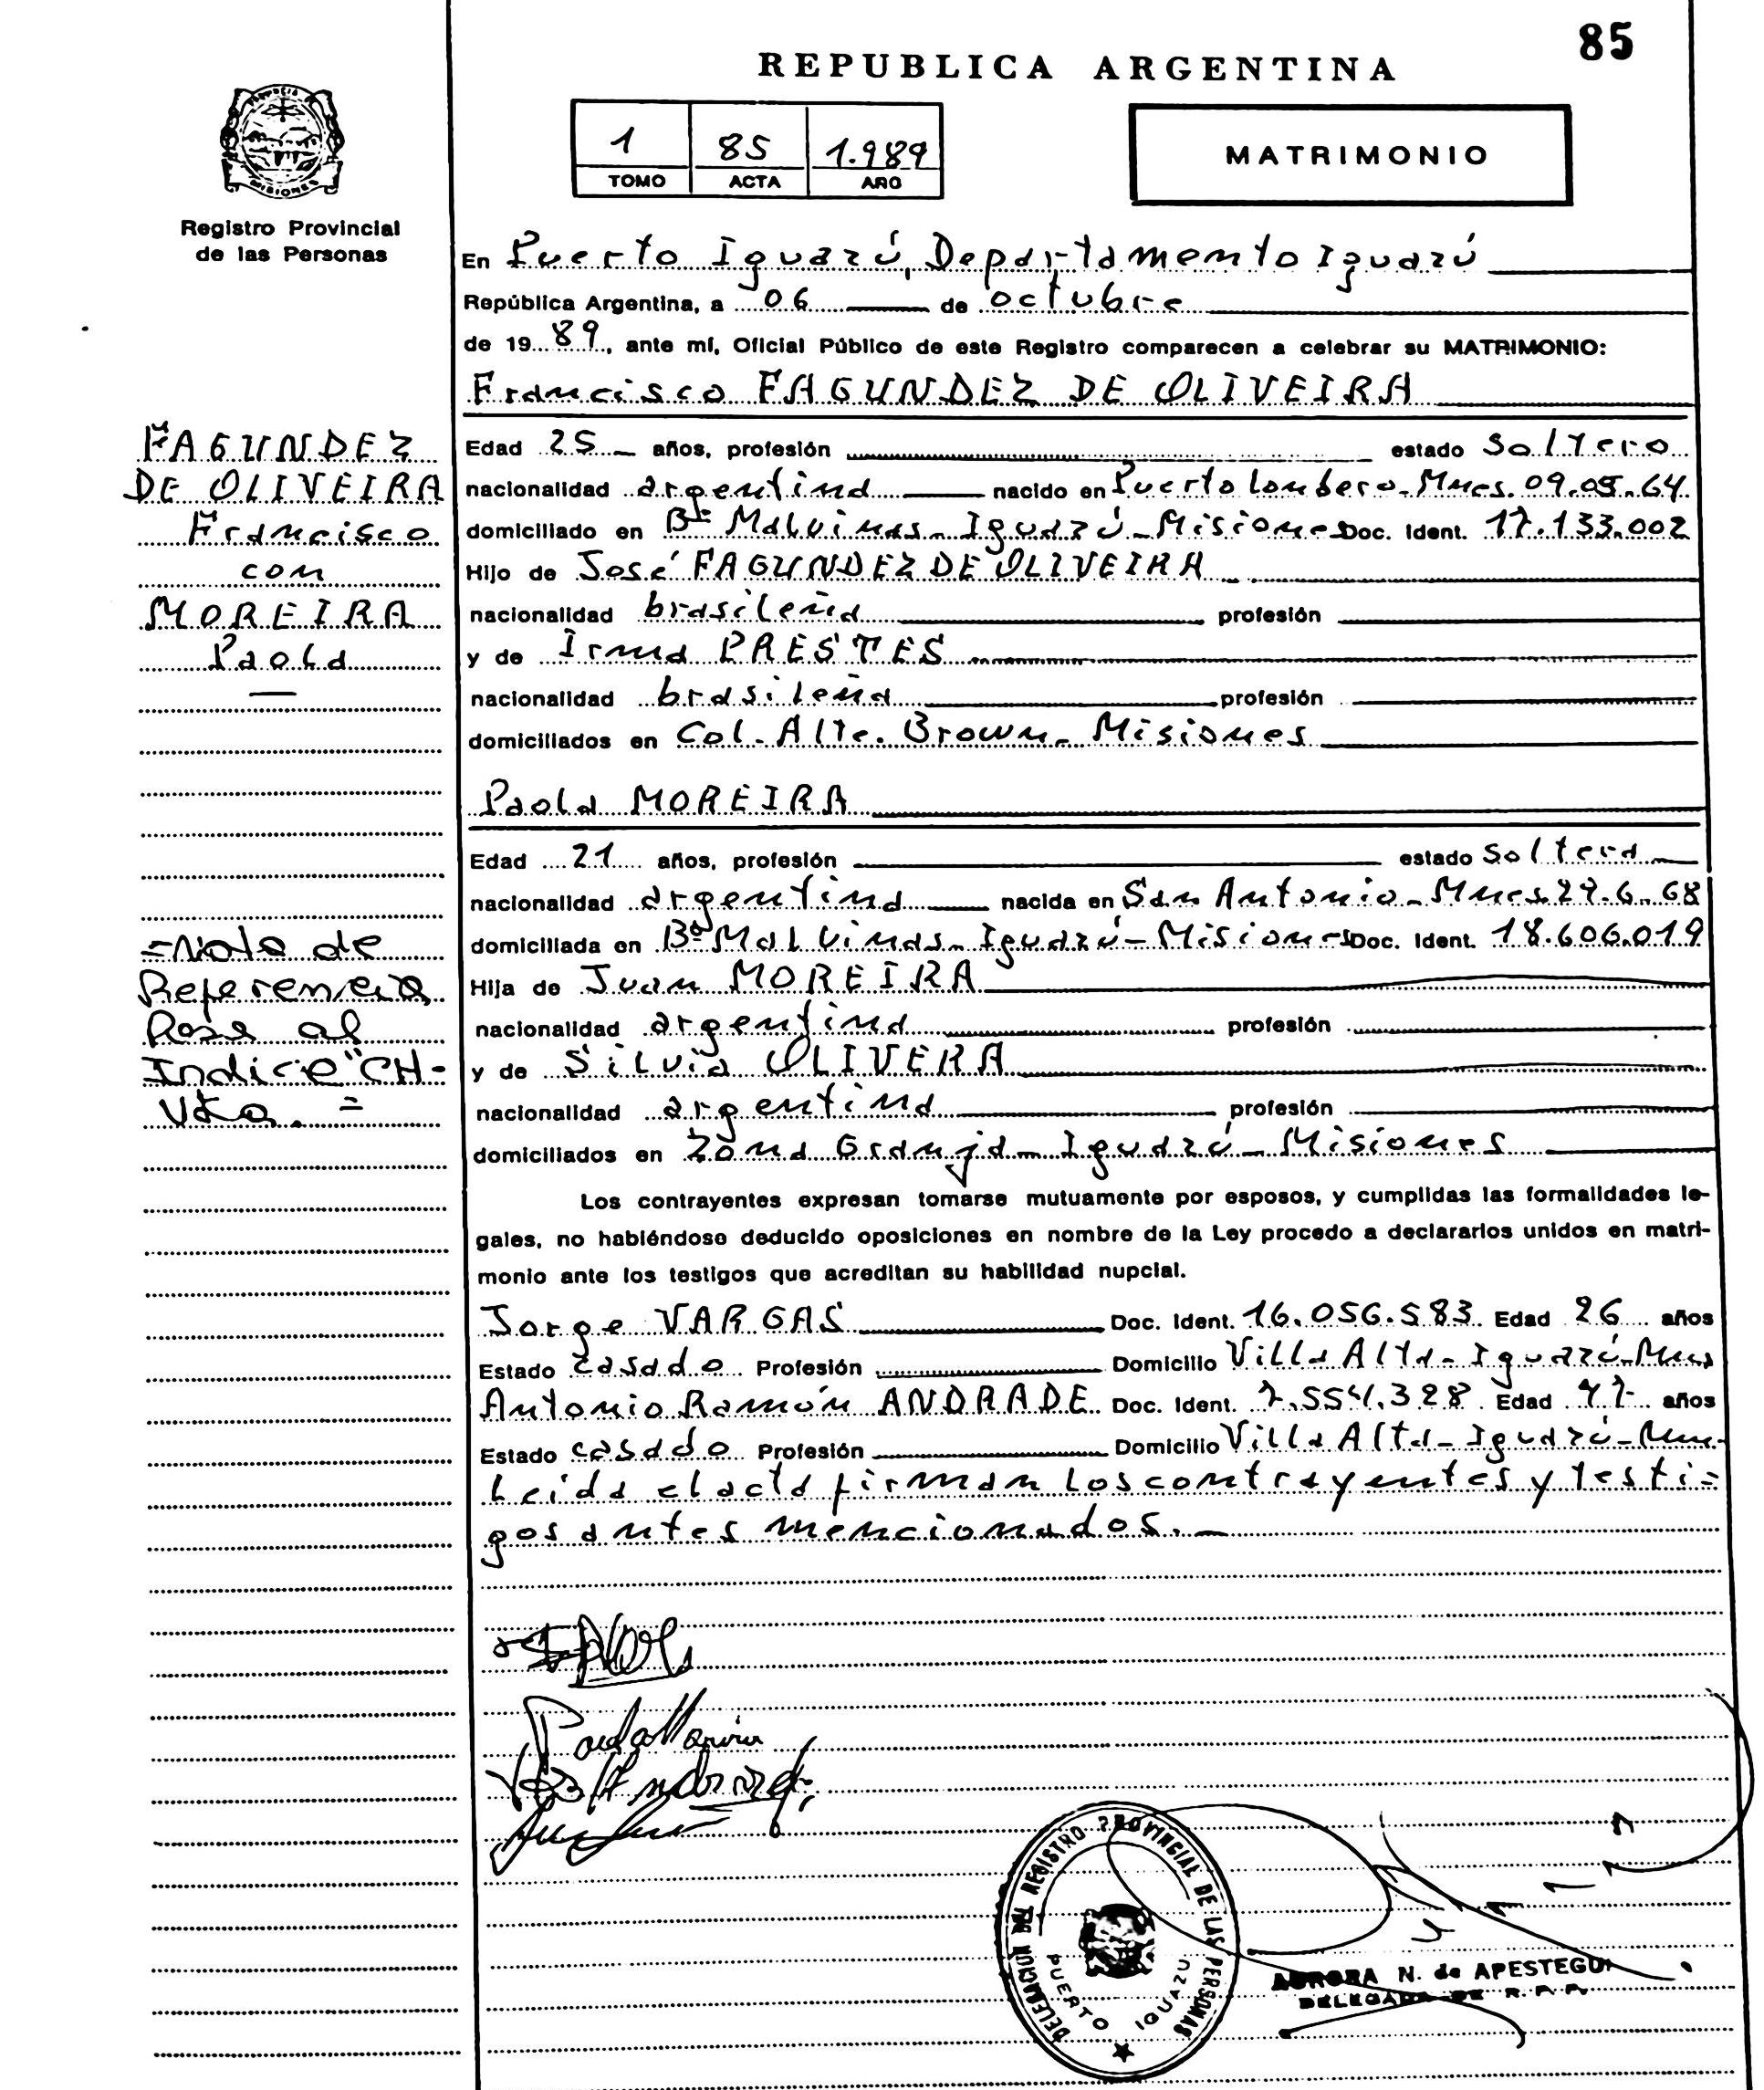 85
REPUBLICA ARGENTINA
1 85 1.989
TOMO ACTA AÑO
MATRIMONIO
Registro Provincial
de las Personas
En Puerto Iguazú, Departamento Iguazú
República Argentina, a 06 de octubre
de 1989, ante mí, Oficial Público de este Registro comparecen a celebrar su MATRIMONIO:
Francisco FAGUNDEZ DE OLIVEIRA
FAGUNDEZ
DE OLIVEIRA
Francisco
con
MOREIRA
Paola
Edad 25 años, profesión estado Soltero
nacionalidad argentina nacido en Puerto Londero - Mnes. 09.05.64
domiciliado en Bº Malvinas - Iguazú - Misiones Doc. Ident. 17.133.002
Hijo de José FAGUNDEZ DE OLIVEIRA
nacionalidad brasileña profesión
y de Irma PRESTES
nacionalidad brasileña profesión
domiciliados en Col. Alte. Brown - Misiones
Paola MOREIRA
Edad 21 años, profesión estado Soltera
nacionalidad argentina nacida en San Antonio - Mnes 27.6.68
domiciliada en Bº Malvinas - Iguazú - Misiones Doc. Ident. 18.606.019
Hija de Juan MOREIRA
nacionalidad argentina profesión
y de Silvia OLIVERA
nacionalidad argentina profesión
domiciliados en Zona Granja - Iguazú - Misiones
=Nota de
Referencia
Pase al
Indice "CH-
Vta. =
Los contrayentes expresan tomarse mutuamente por esposos, y cumplidas las formalidades le-
gales, no habiéndose deducido oposiciones en nombre de la Ley procedo a declararlos unidos en matri-
monio ante los testigos que acreditan su habilidad nupcial.
Jorge VARGAS Doc. Ident. 16.056.583 Edad 26 años
Estado casado Profesión Domicilio Villa Alta - Iguazú - Mnes
Antonio Ramón ANDRADE Doc. Ident. 7.554.328 Edad 47 años
Estado casado Profesión Domicilio Villa Alta - Iguazú - Mnes.
Leída el acta firman los contrayentes y testi=
gos antes mencionados. -
Paola Moreira
Andrade
DELEGACION DEL REGISTRO PROVINCIAL DE LAS PERSONAS
PUERTO IGUAZU
AURORA N. de APESTEGUI
DELEGADA DE R.P.P.